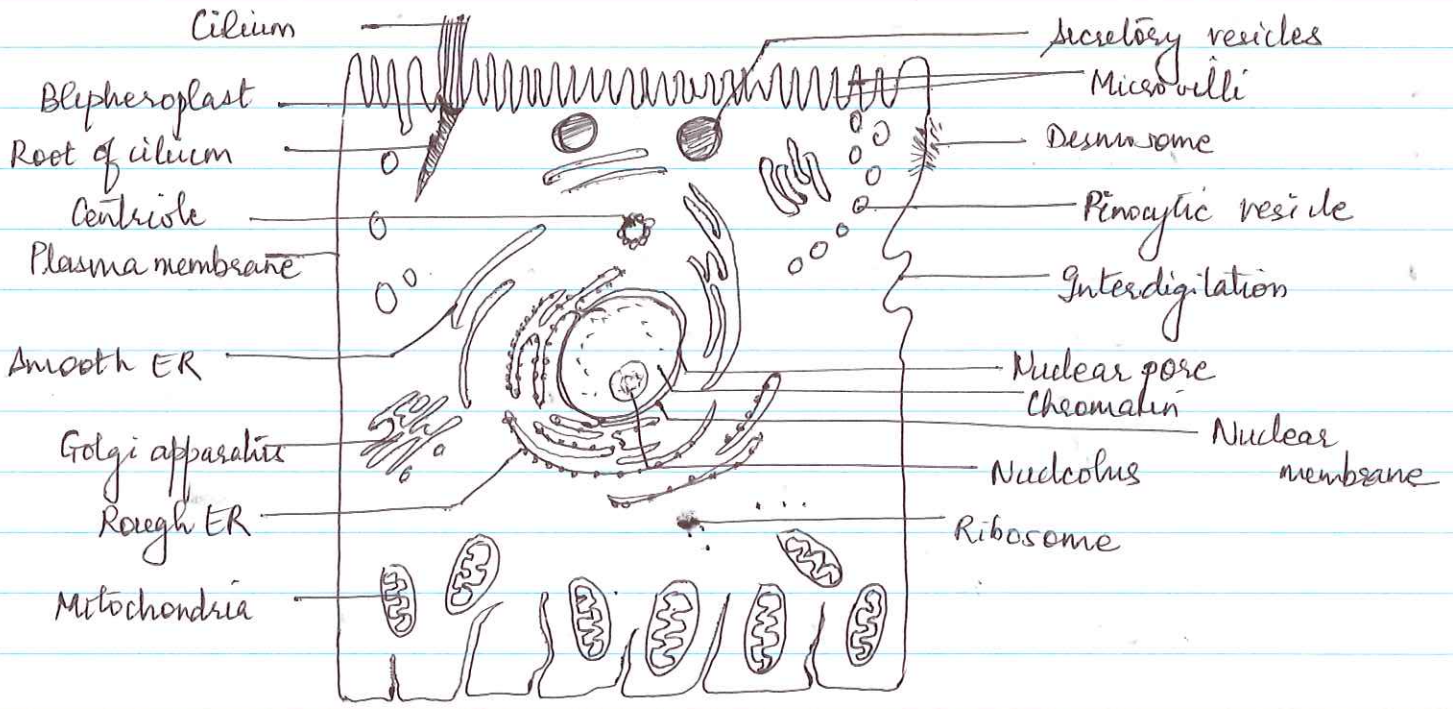 Cilium
Blepheroplast
Root of cilium
Centriole
Plasma membrane
Smooth ER
Golgi apparatus
Rough ER
Mitochondria
Secretory vesicles
Microvilli
Desmosome
Pinocytic vesicle
Interdigitation
Nuclear pore
Chromatin
Nuclear
membrane
Nucleolus
Ribosome